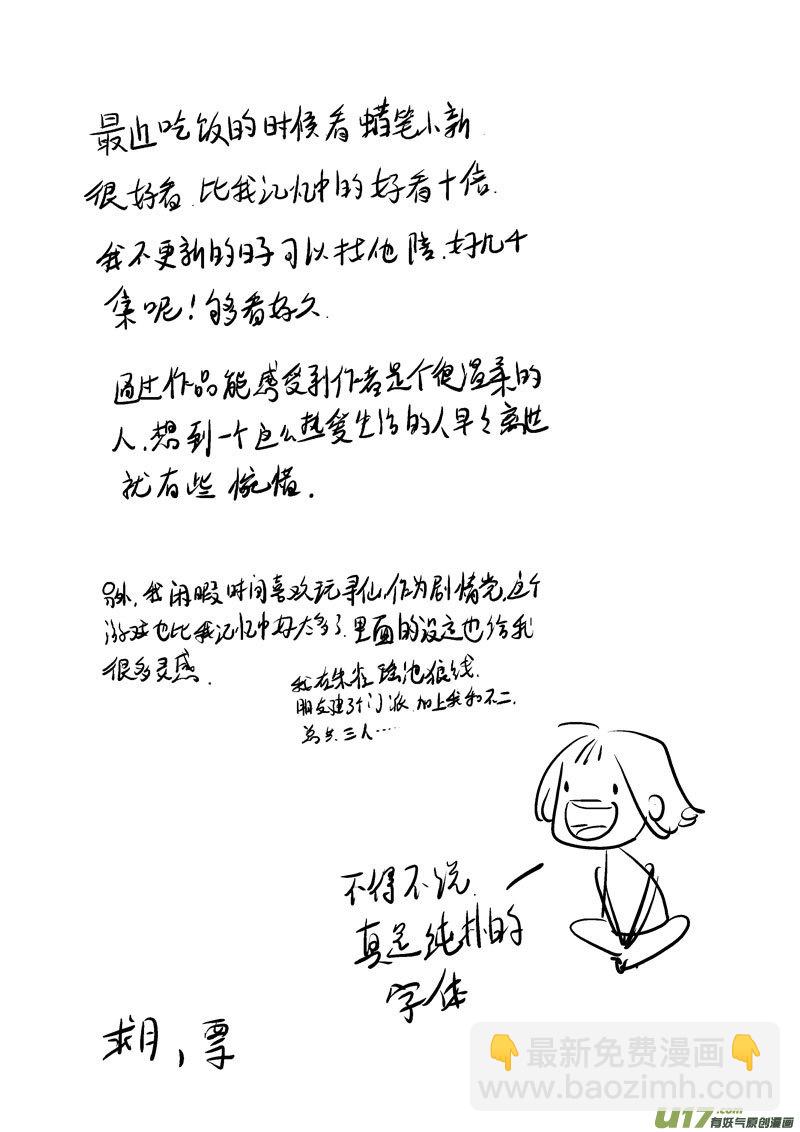 最近吃饭的时候看蜡笔小新
很好看.比我记忆中的好看十倍.
我不更新的日子可以找他陪.好几千
集呢!够看好久.
通过作品能感受到作者是个很温柔的
人.想到一个这么热爱生活的人早早离世
就有些惋惜.
另外,我闲暇时间喜欢玩寻仙,作为剧情党,这个
游戏也比我记忆中好太多了.里面的设定也给我
很多灵感.
我在朱雀瑶池狼线.
朋友建了个门派.加上我和不二.
总共三人……
不得不说.
真是纯朴的
字体
求月,票
最新免费漫画
www.baozimh.com
U17.com
有妖气原创漫画